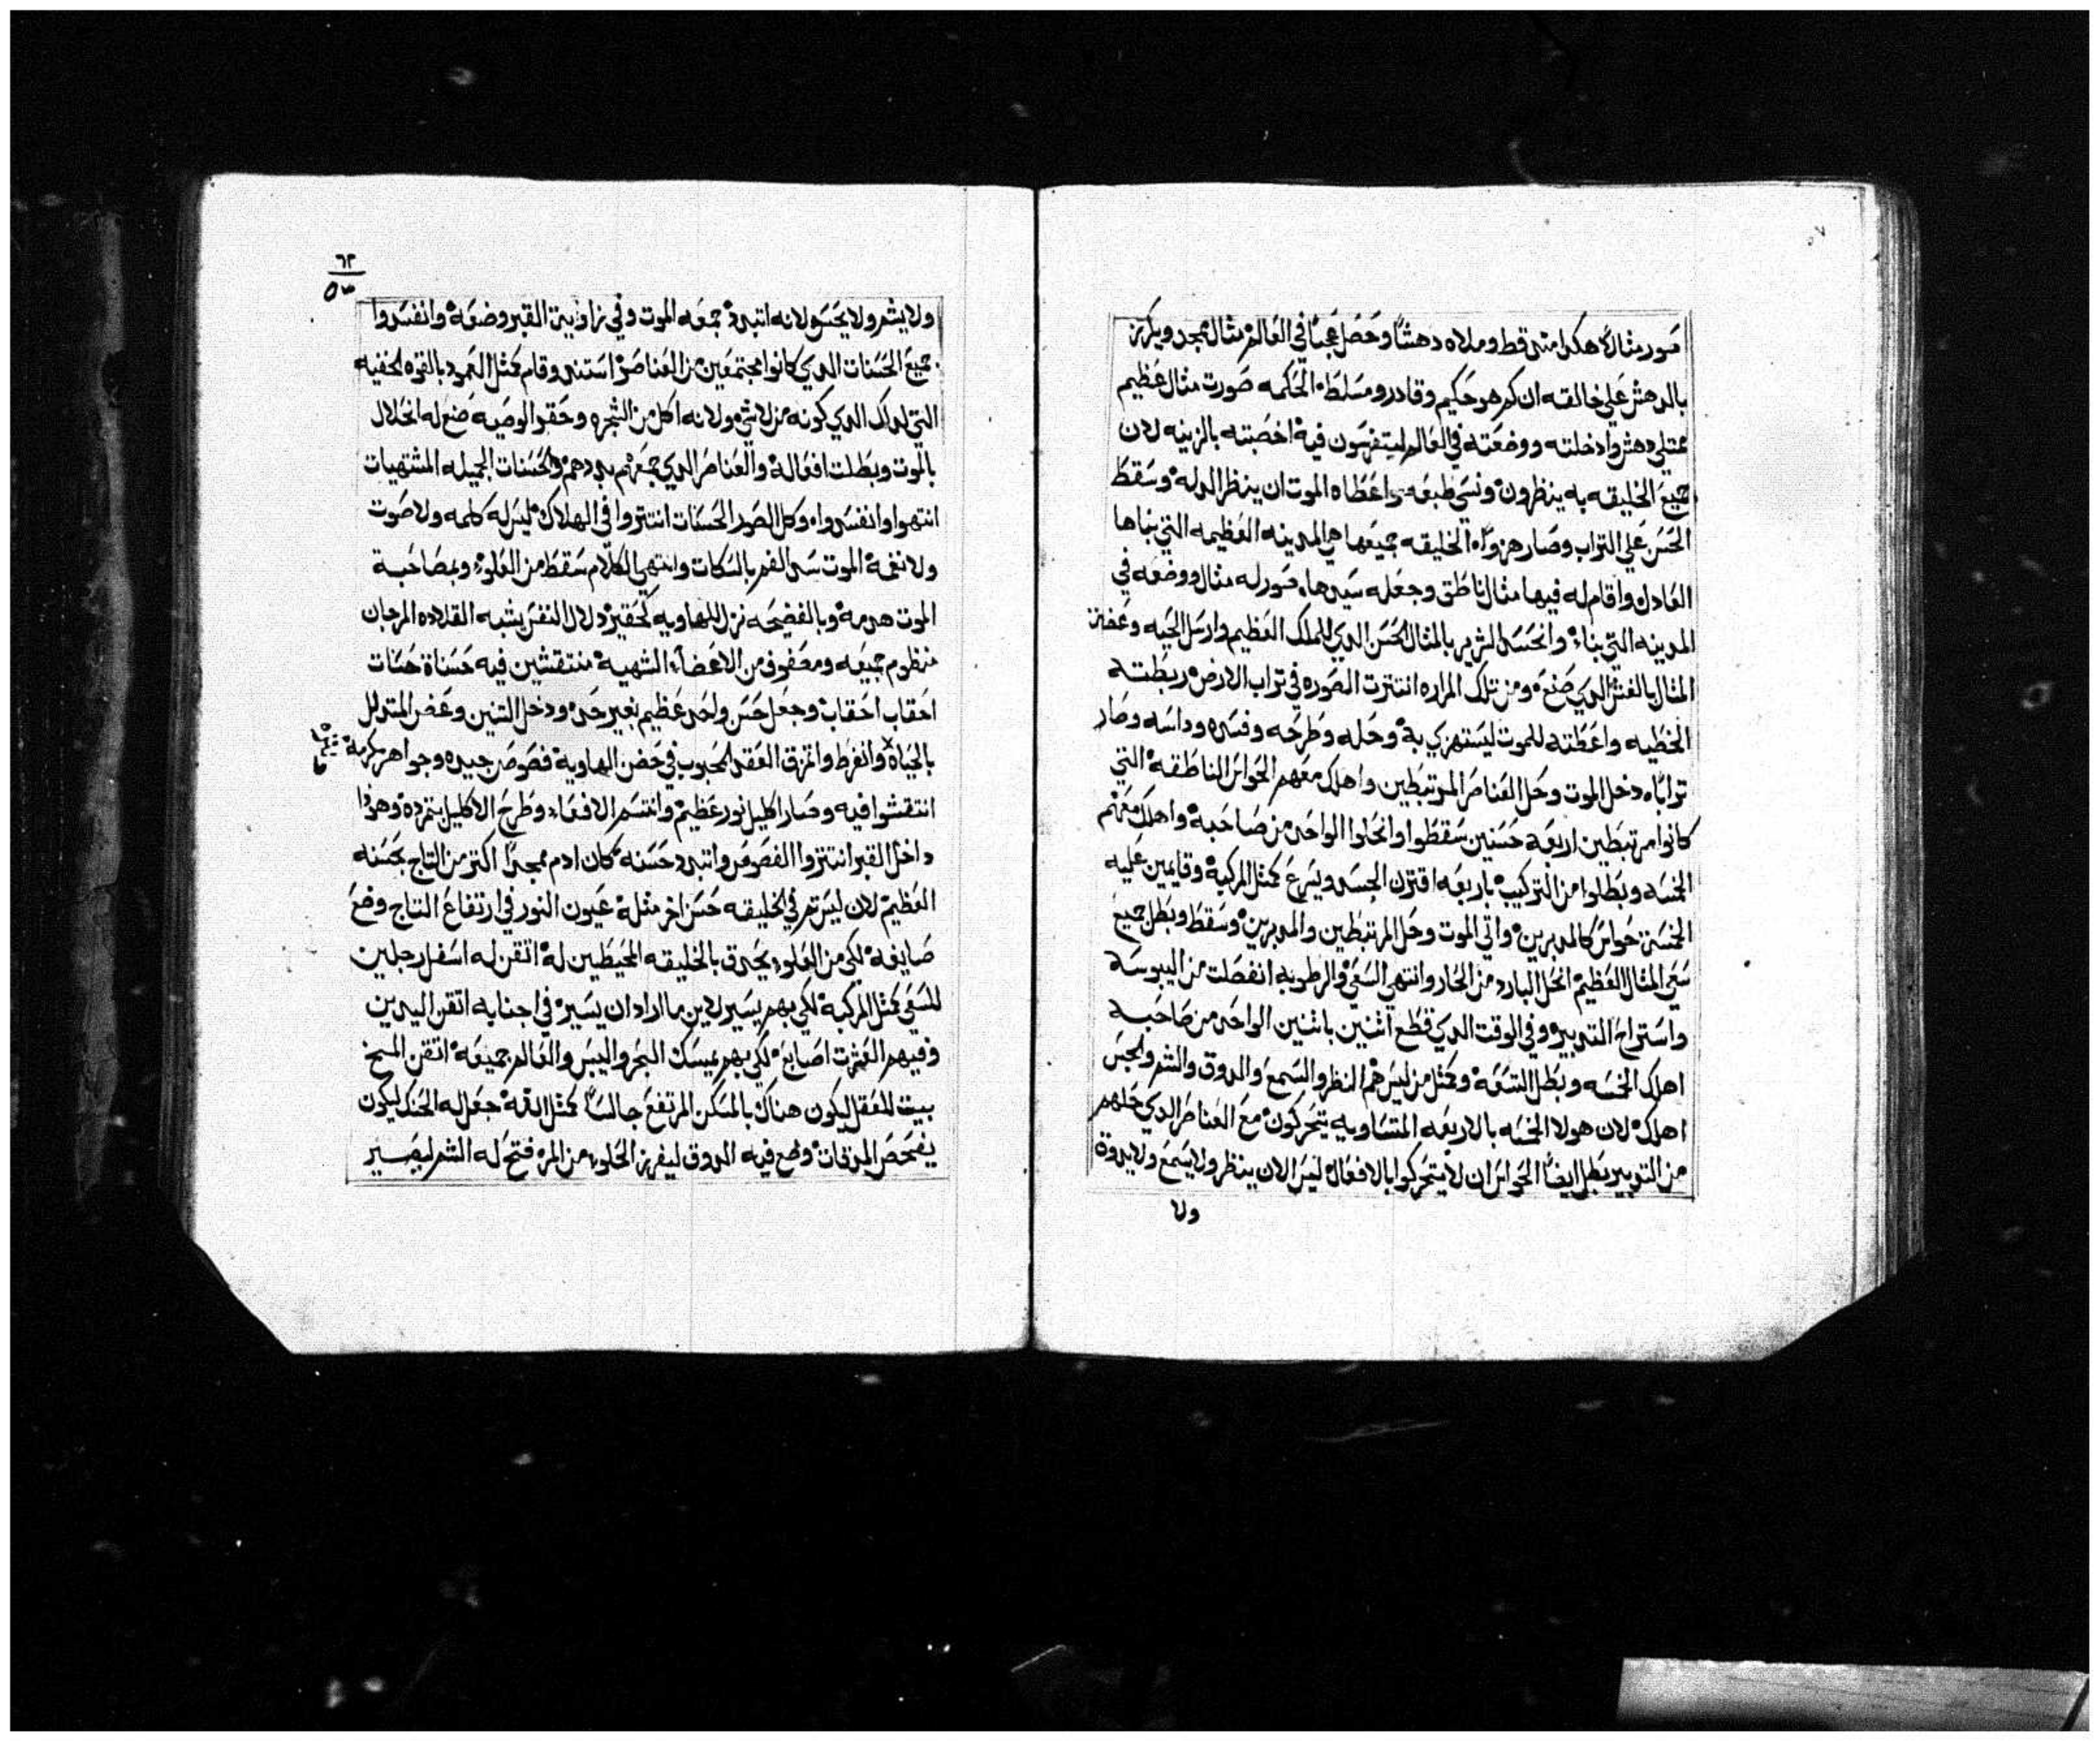 صور مثالاً هكدا متى قط وملاه دهشاً وحصل عجباً في العالم مثال مجد ويكرز
بالدهش علي خالقه ان كم هو حكيم وقادر ومسلط الحكمه صورت مثال عظيم
ممتلي دهش وادخلته ووضعته في العالم ليتفرسون فيه اخصبته بالزينه لان
جميع الخليقه به ينظرون ونسي طبعه واعطاه الموت ان ينظر الدله وسقط
الحسن علي التراب وصار هزواً الخليقه جميعها هي المدينه العظيمه التي بناها
العادل واقام له فيها مثال ناطق وجعله سيدها صور له مثال ووضعه في
المدينه التي بناء وانحسد الشرير بالمثال الحسن الدي للملك العظيم وارسل الحيه وعضت
المثال بالغش الدي صنع ومن تلك المراره انتترت الصوره في تراب الارض ربطته
الخطيه واعطته للموت ليستهزي به وحله وطرحه وفسده وداسه وصار
تراباً دخل الموت وحل العناصر المرتبطين واهلك معهم الحواس الناطقه التي
كانوا مرتبطين اربعه حسنين سقطوا وانحلوا الواحد من صاحبه واهلك معهم
الخمسه وبطلوا من التركيب باربعه اقترن الجسد ويسرع كمثل المركبه وقايمين عليه
الخمسة حواس كالمدبرين واتي الموت وحل المرتبطين والمدبرين وسقط وبطل جميع
سعي المثال العظيم انحل البارد من الحار وانتهي السعي والرطوبه انفصلت من اليبوسه
واستراح التدبير وفي الوقت الدي قطع اثنين باثنين الواحد من صاحبه
اهلك الخمسه وبطل التسعه وكمثل من ليس هم النظر والسمع والدوق والشم والجس
اهلك لان هولا الخمسه بالاربعه المتساويه يتحركون مع العناصر الدي حلهم
من التدبير بطل ايضاً الحواس ان لا يتحركوا بالافعال ليس الان ينظر ولا يسمع ولا يدوق
ولا
٦٢
ولا يشم ولا يحس لانه اتبدد جمعه الموت وفي زاوية القبر وضعه وانفسدوا
جميع الحسنات الدي كانوا مجتمعين من العناصر استند وقام كمثل العمود بالقوه الخفيه
التي لدلك الدي كونه من لا شي ولانه اكل من الشجره وحقر الوصيه صنع له انحلال
بالموت وبطلت افعاله والعناصر الدي جمعهم بددهم والحسنات الجميله المشتهيات
انتهوا وانفسدوا وكل الصور الحسنات انتتروا في الهلاك ليس له كلمه ولا صوت
ولا نغمة الموت سد الفم بالسكات وانتهي الكلام سقط من العلو وبمصاحبة
الموت هدمه وبالفضيحه نزل للهاويه كحقير دلال النفس يشبه القلاده المرجان
منظوم جميعه ومصفوف من الاعضاء الشهية منتقشين فيه حسناة حسنات
احقاب احقاب وجعل حسن واحد عظيم بغير حد ودخل التنين وعض المتدلل
بالحياه وانفرط واتمزق العقد المحبوب في حضن الهاوية فصوص جيده وجواهر كرمة
انتقشوا فيه وصار اكليل نور عظيم وانتسم الافعاء وطرح الاكليل بتمرده وهودا
داخل القبر انتتروا الفصوص واتبدد حسنه كان ادم ممجداً اكتر من التاج بحسنه
العظيم لان ليس تم في الخليقه حسن اخر مثله عيون النور في ارتفاع التاج وضع
صايغه لكي من العلو يحدق بالخليقه المحيطين له اتقن له اسفل رجلين
للسعي كمثل المركبة لكي بهم يسير لاين ما اراد ان يسير في اجنابه اتقن اليدين
وفيهم العشرت اصابع لكي بهم يمسك البحر واليبس والعالم جميعه اتقن المخ
بيت للعقل ليكون هناك بالمسكن المرتفع جالساً كمثل الله جعل له الحنك ليكون
يفحص المدقات وضع فيه الدوق ليفرز الحلو من المر فتح له الشم ليصير